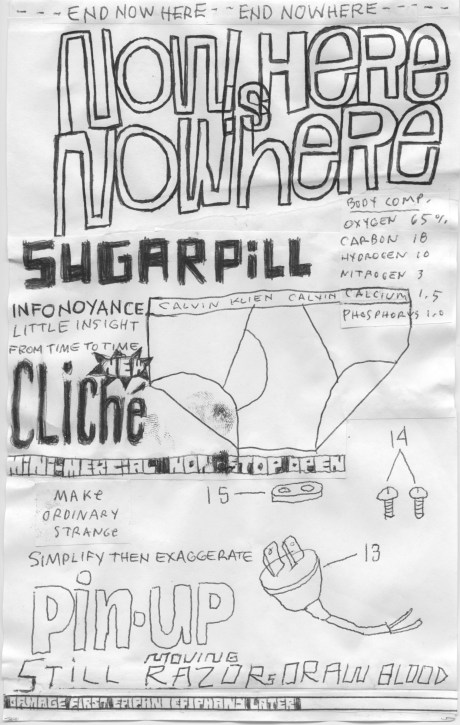 END NOW HERE - - END NOWHERE - -
NOW is HERE
NOWhERE
BODY COMP.
OXYGEN 65%
CARBON 18
HYDROGEN 10
NITROGEN 3
CALCIUM 1.5
PHOSPHORUS 1.0
SUGARPiLL
INFONOYANCE
LITTLE INSIGHT
FROM TIME TO TIME
CALVIN KLIEN CALVIN
NEW
CLiché
MINI-MERCIAL NON-STOP OPEN
14
15
MAKE
ORDINARY
STRANGE
SIMPLIFY THEN EXAGGERATE
13
Pin-UP
STILL MOVING RAZORS DRAW BLOOD
DAMAGE FIRST EPIPHANY LATER